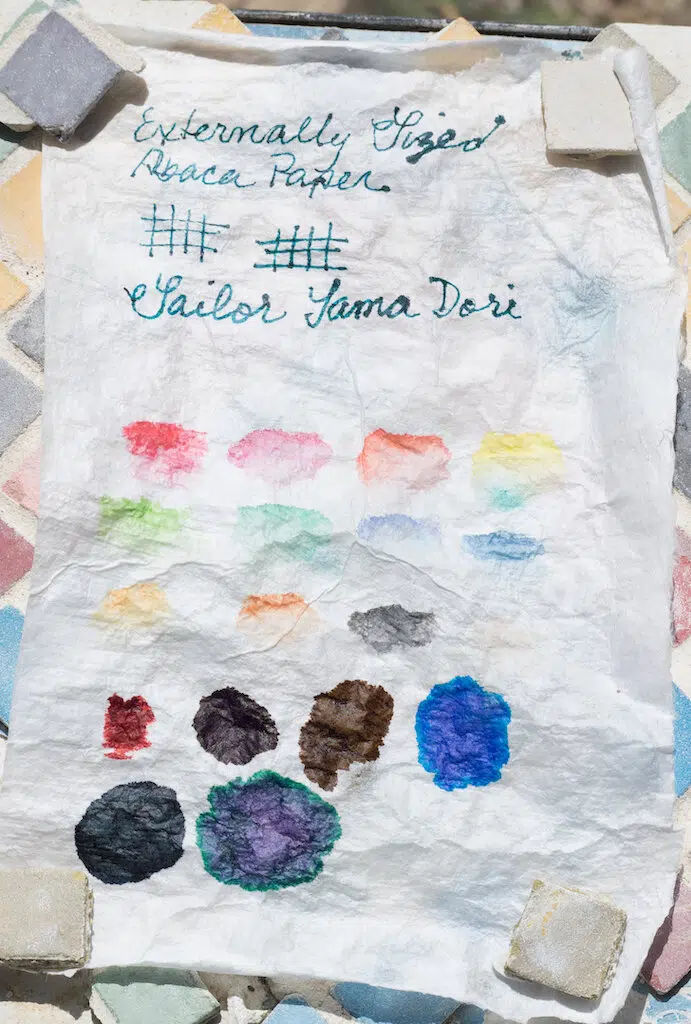 Externally Sized
Abaca Paper.
Sailor Yama Dori